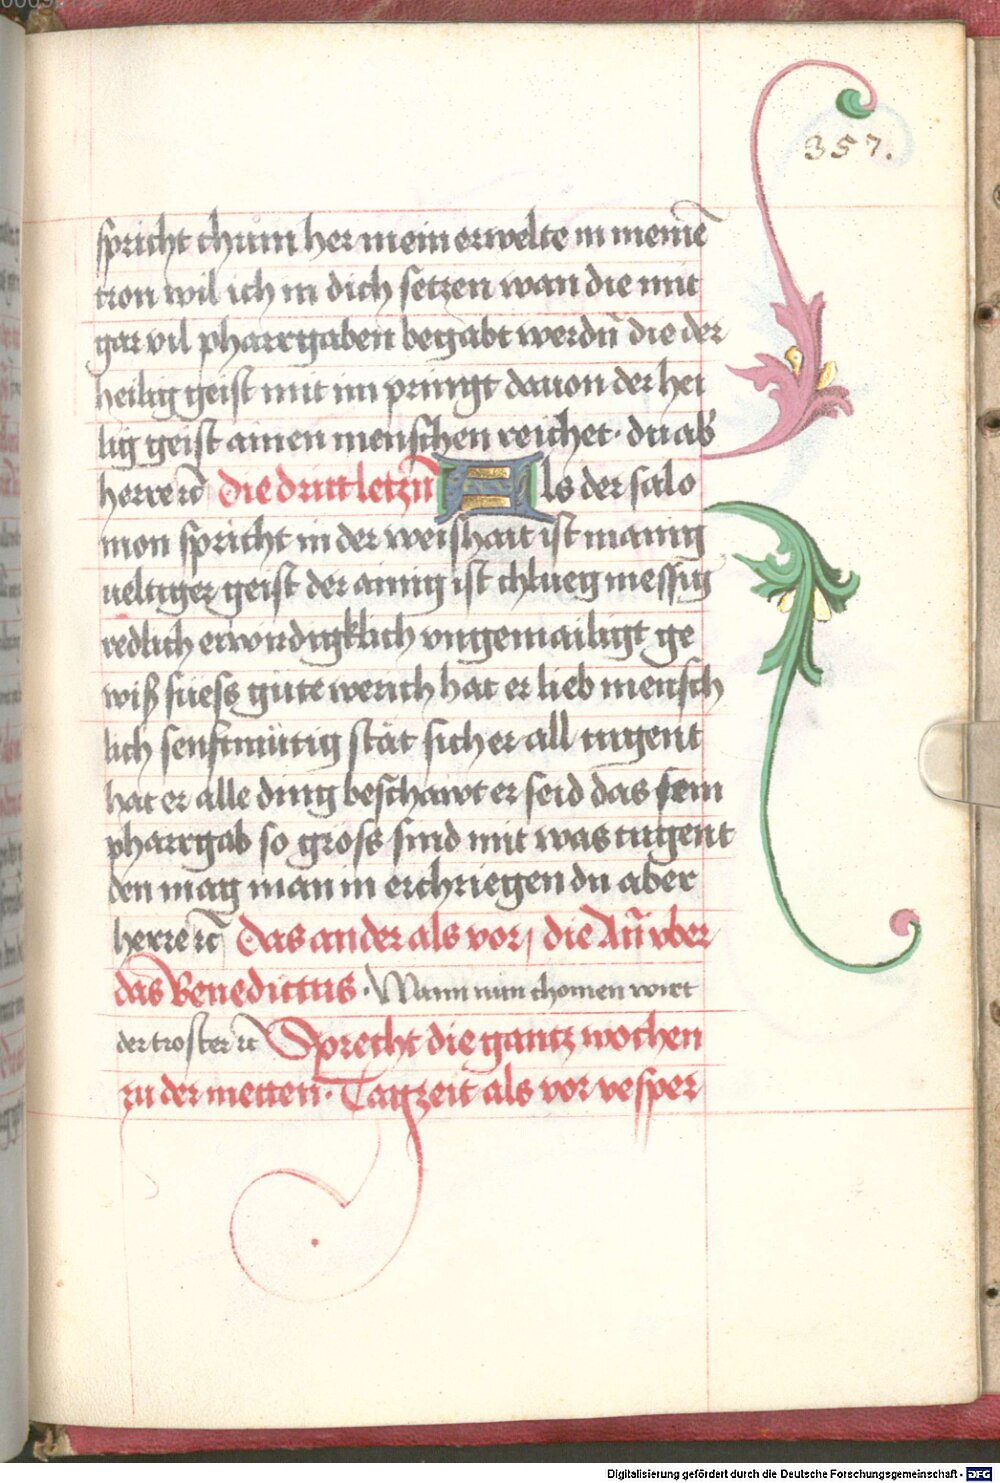 357.
spricht chum her mein erwelte in meinē
tron wil ich in dich setzen wan die mit
gar vil pharrgaben begabt werdn̄ die der
heilig geist mit im pringt dauon der hei
lig geist ainen menschen reichet · du ab̄
herre ꝛc̄ die dritt letzn̄ Als der salo
mon spricht in der weishait ist manig
ueltiger geist der ainig ist chlueg messig
redlich erwirdigklich vngemailigt ge
wiß suess gute werich hat er lieb mensch
lich senftmütig stät sich er all tugent
hat er alle ding beschawt er seid das sein
pharrgab so gross sind mit was tugent
den mag man in erchriegen du aber
herre ꝛc̄ Das ander als vor, die Añ vber
das Benedictus · Wann nun chomen wirt
der troster ꝛc̄ Sprecht die gantz wochen
zu der metten · Tagzeit als vor vesper
Digitalisierung gefördert durch die Deutsche Forschungsgemeinschaft - DFG